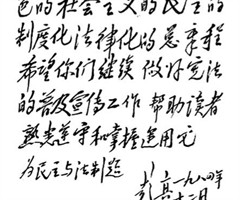 色的社会主义的民主的
制度化法律化的总章程
希望你们继续做好宪法
的普及宣传工作 帮助读者
熟悉遵守和掌握运用它
为民主与法制题
彭真一九八四年
十二月